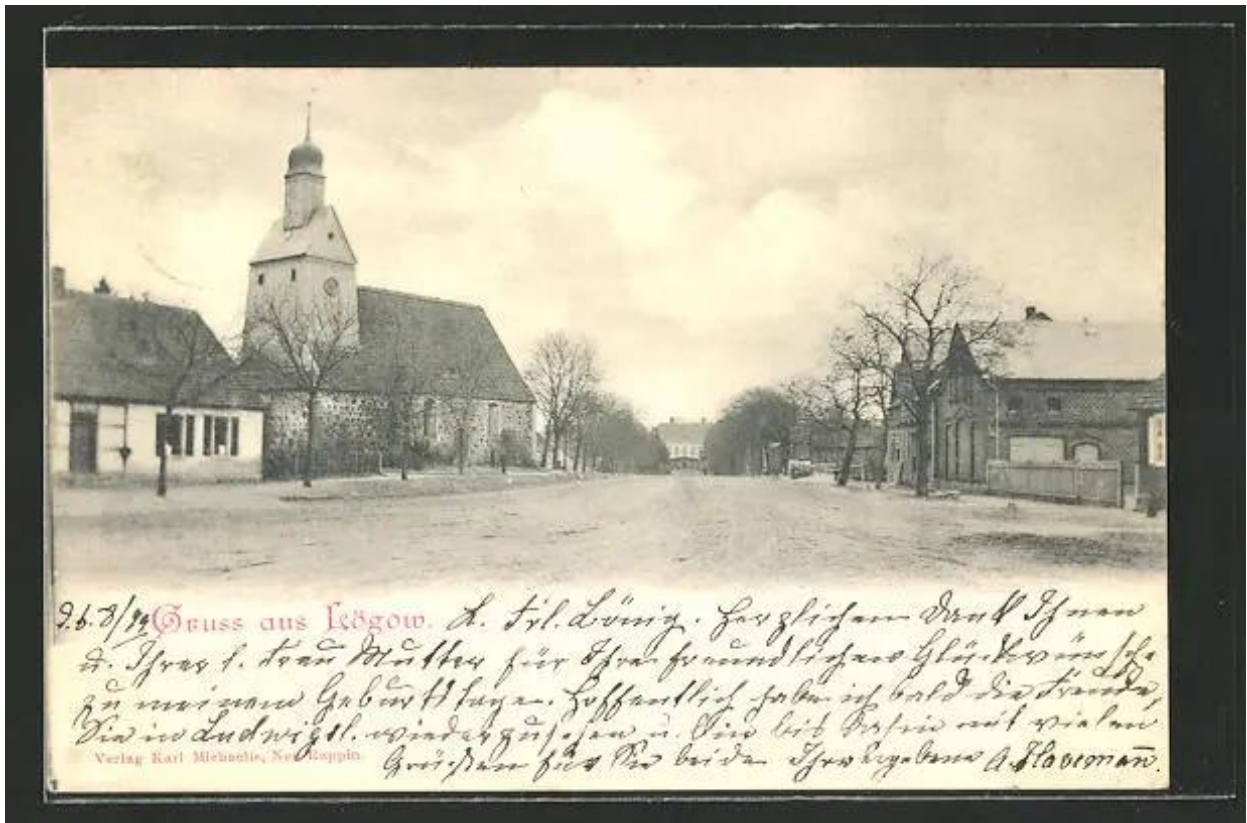 9.6.8/99 Gruss aus Lögow. L. Frl. König. Herzlichen Dank Ihnen
u. Ihrer l. Frau Mutter für Ihre freundlichen Glückwünsche
zu meinem Geburtstage. Hoffentlich habe ich bald die Freude,
Sie in Ludwigsl. wiederzusehen u. bin bis dahin mit vielen
Grüßen für Sie beide Ihre ergebene A. Havemañ.
Verlag Karl Michaelis, Neu-Ruppin.